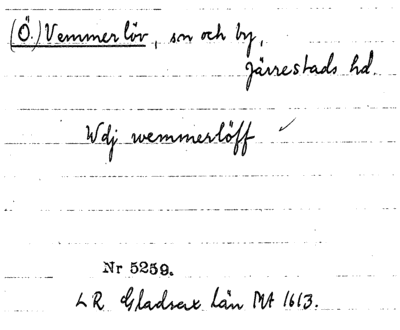 (Ö.) Vemmerlöv, sn och by,
Järrestads hd.
Wdj wemmerlöff ✓
Nr 5259.
LR Gladsax Län MA 1613.